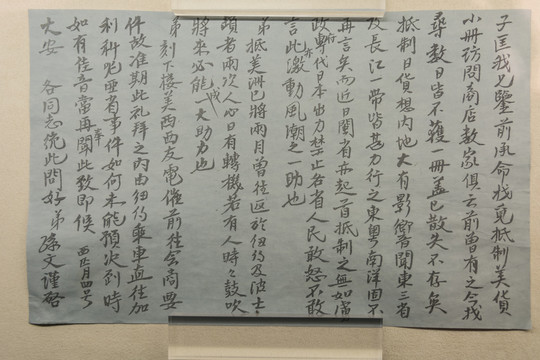 子匡我兄鑒前承命找覓抵制美貨
小冊訪問商店数家俱云前曾有之今找
尋数日皆不獲一冊蓋已散失不存矣
抵制日貨想内地大有影響聞東三省
及長江一帶皆甚力行之東粤南洋固不
再言矣而近日閩省亦起首抵制之無如滿
政府代日本出力禁止各省人民敢怒不敢
言此亦激動風潮之一助也
弟抵美洲已將兩月曾往返於紐約及波士
頓者兩次人心日有轉機若有人時々鼓吹
將來必能成一大助力也
弟刻下接美西西友電催前往会商要
件故准期此礼拜之内由紐約乘車直往加
利科尼亞省事件如何未能預決到時
如有佳音當再奉聞此致即候 西正月四号
大安 各同志統此問好 弟孫文謹啓